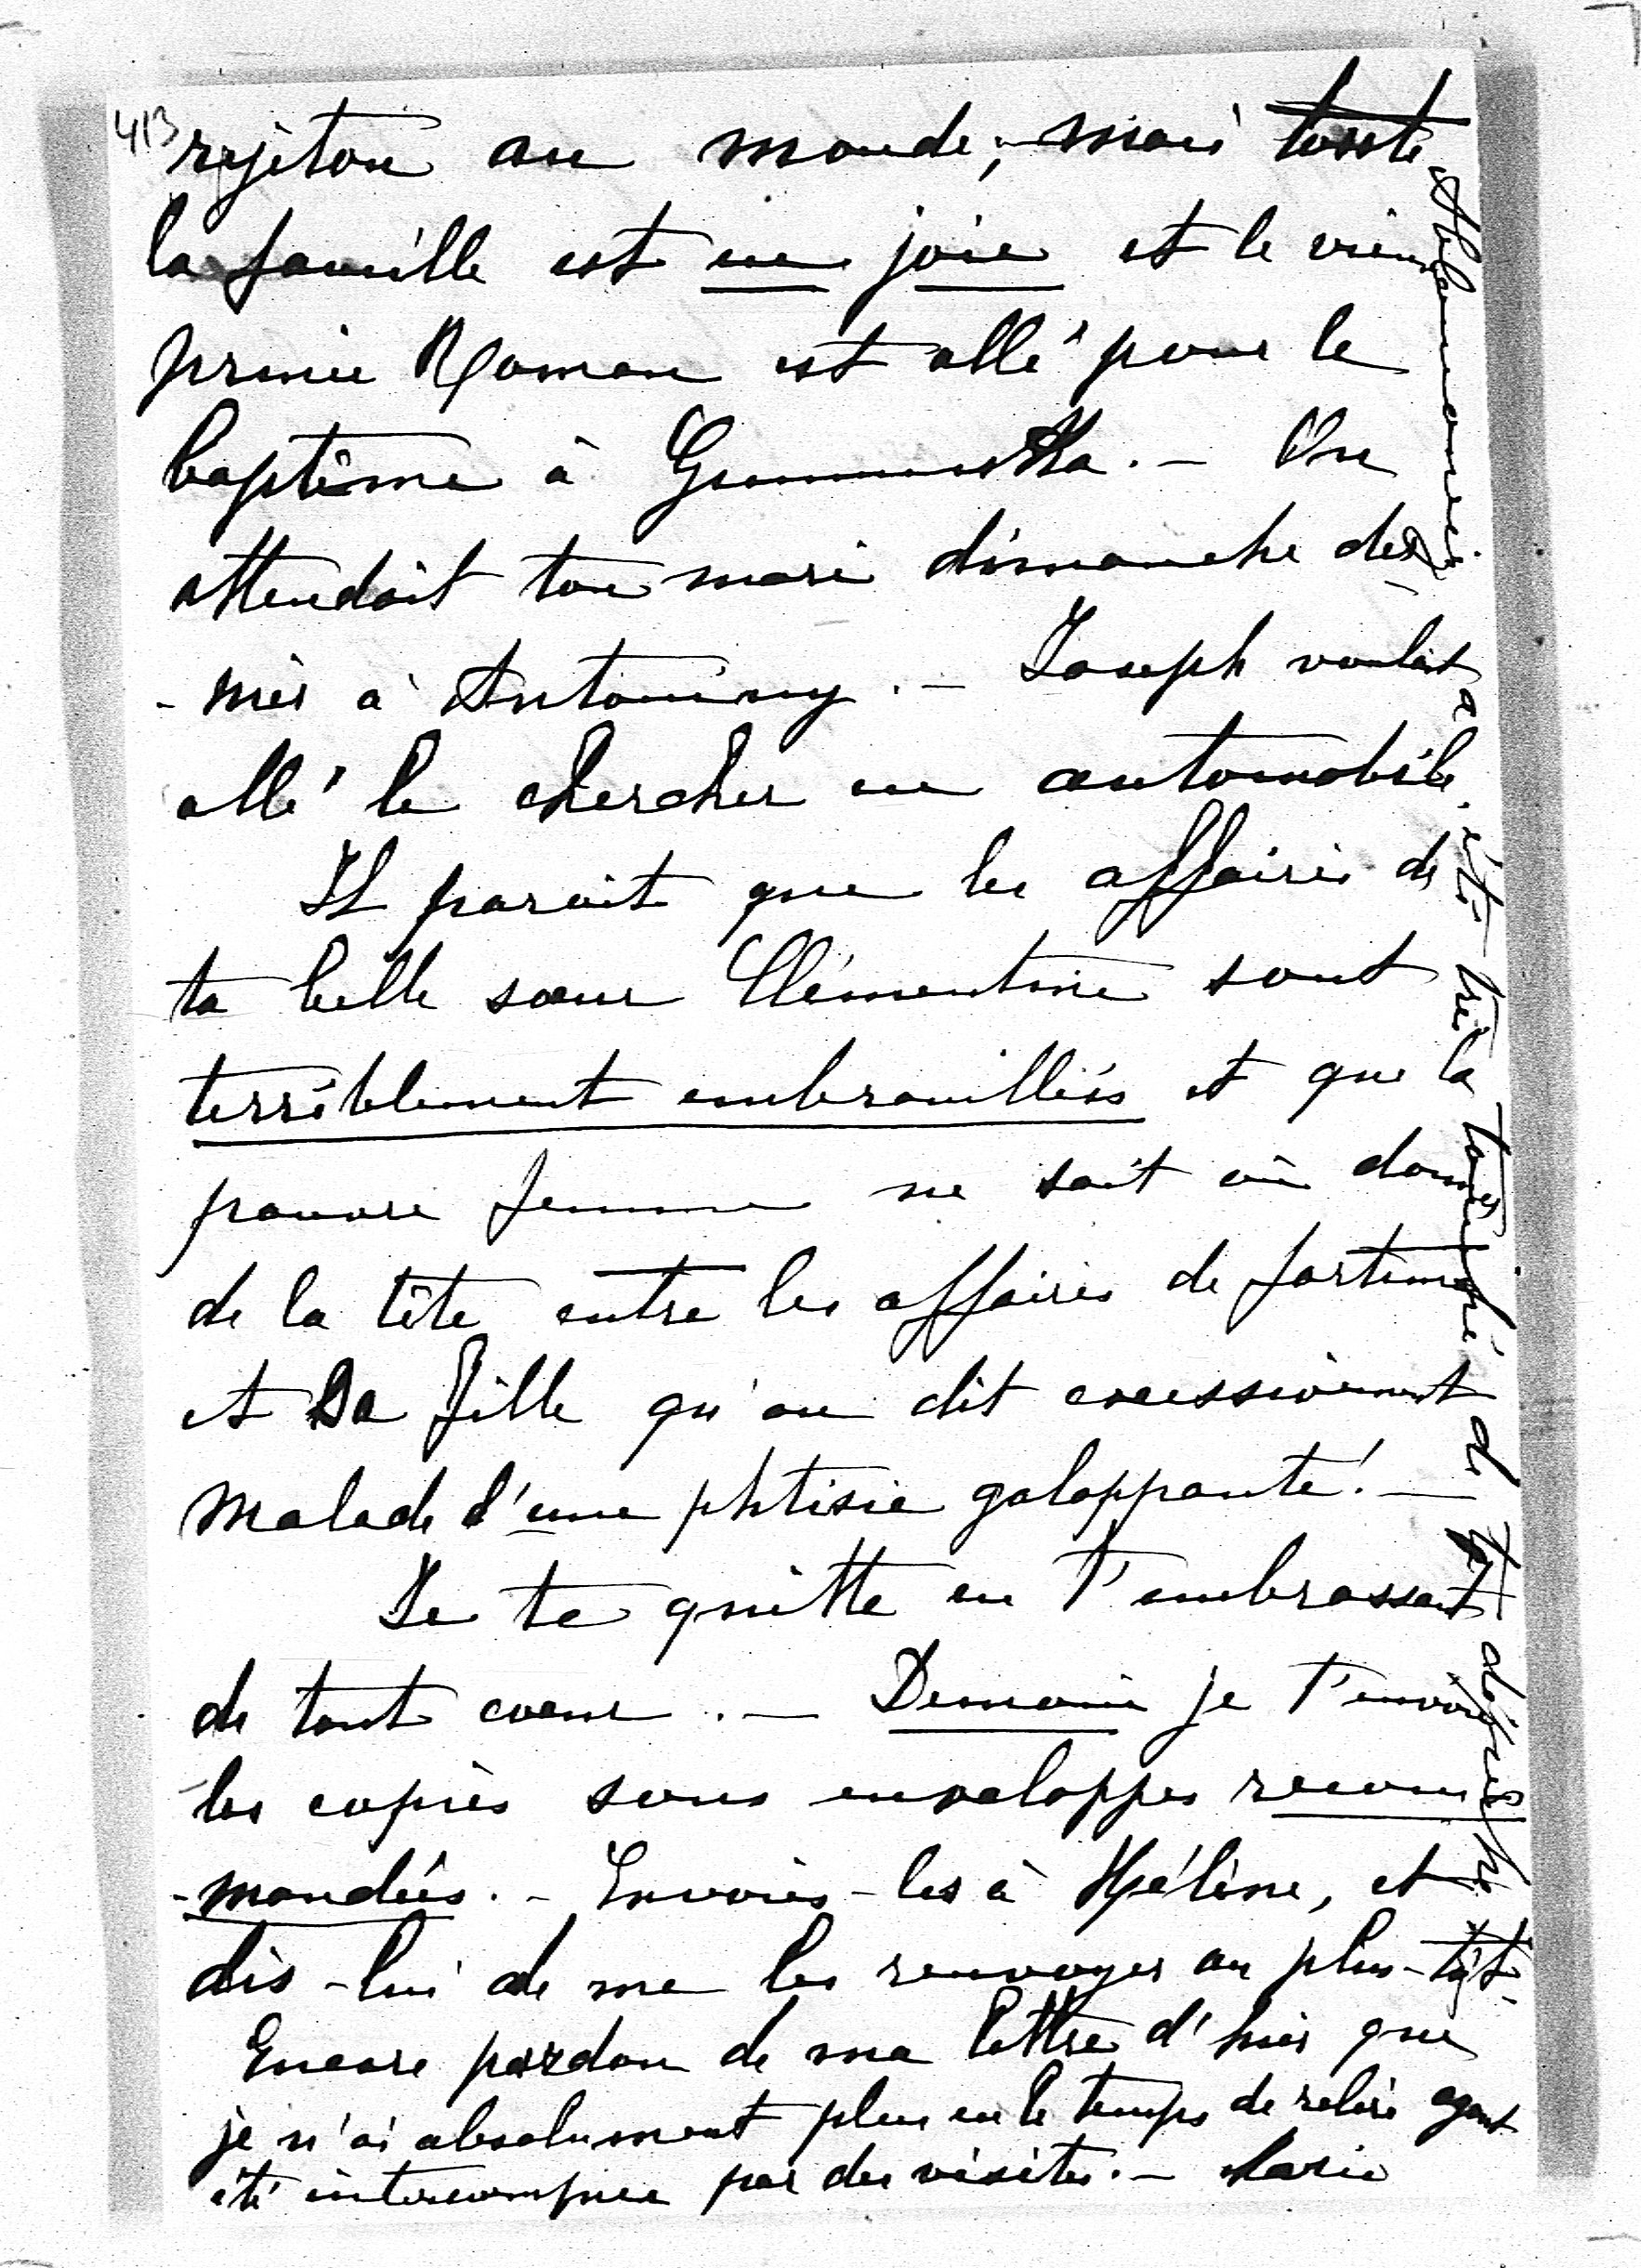 413
rejeton au monde; mais toute
la famille est en joie et le vieux
prince Roman est allé pour le
baptême à . — On
attendait ton mari dimanche der
- nier à Antoniny . — Joseph voulait
allé le chercher en automobile.
Il parait que les affaires de
ta belle soeur Clémentine sont
terriblement embrouillées et que la
pauvre femme ne sait où donner
de la tête entre les affaires de fortune
et Sa fille qu'on dit excessivement
malade d'une phtisie galoppante! —
Je te quitte en T'embrassant
de tout coeur . — Demain je T'envoie
les copies sous enveloppes recom
- mandées. - Envoies-les à Hélène, et
dis-lui de me les renvoyer au plus-tôt.
Encore pardon de ma lettre d'hier que
je n'ai absolument plus eu le temps de relire ayant
été interrompue par des visites. — Marie
a été très touché de ta dépêche